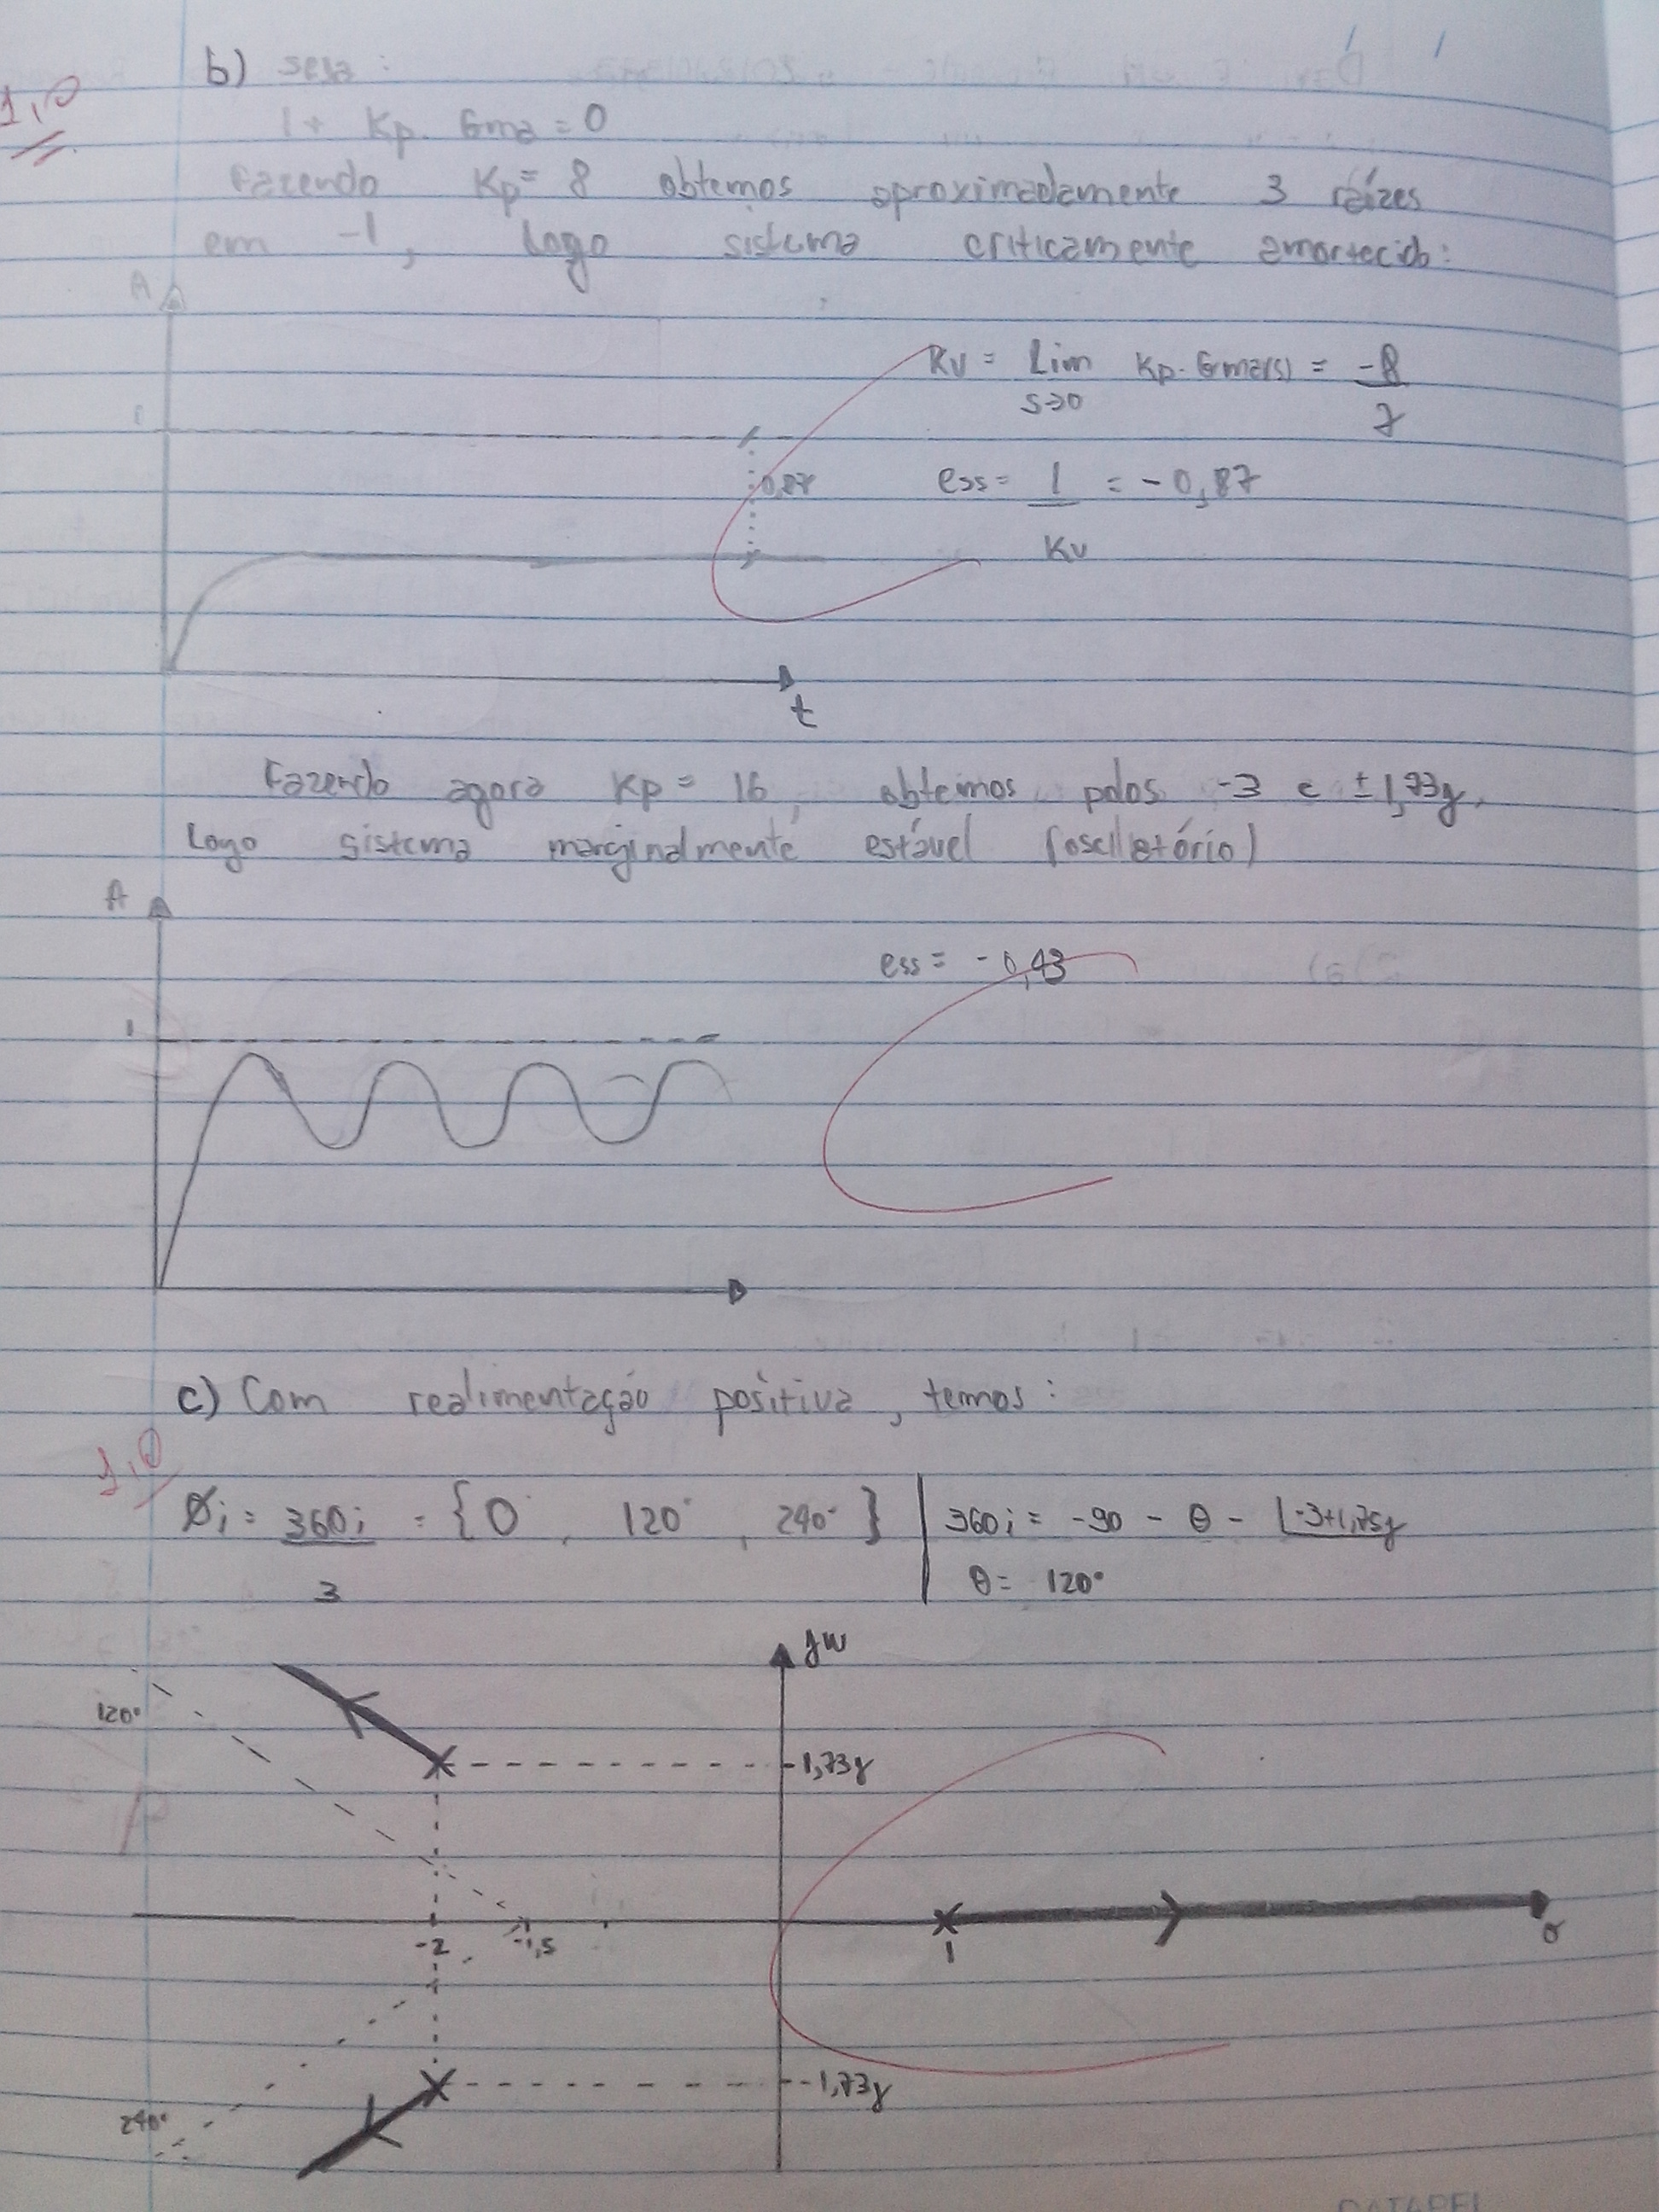 b) seja:
1,0
1 + Kp. Gma = 0
Fazendo Kp = 8 obtemos aproximadamente 3 raízes
em -1, logo sistema criticamente amortecido:
A
Kv = Lim Kp. Gma(s) = -8
s→0 7
1
0,87
ess = 1 = -0,87
Kv
t
Fazendo agora Kp = 16, obtemos polos -3 e ±1,73j,
Logo sistema marginalmente estável (oscilatório)
A
ess = -0,43
1
c) Com realimentação positiva, temos:
1,0
Øi = 360i = {0°, 120°, 240°} | 360i = -90 - θ - ∠-3+1,75j
3
θ = 120°
jw
120°
1,73j
-2 -1,5 1 σ
-1,73j
240°